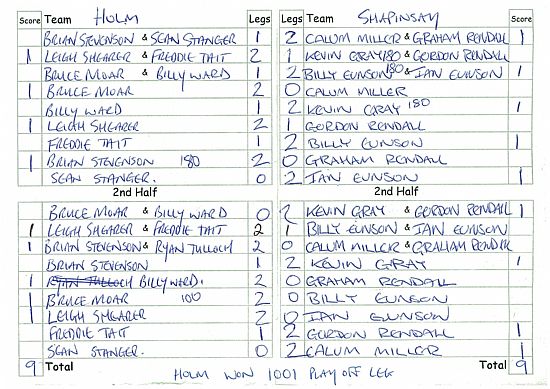 Score Team HOLM Legs Legs Team SHAPINSAY Score
BRIAN STEVENSON & SEAN STANGER 1 2 CALUM MILLER & GRAHAM RENDALL 1
1 LEIGH SHEARER & FREDDIE TAIT 2 1 KEVIN GRAY 180 & GORDON RENDALL
BRUCE MOAR & BILLY WARD 1 2 BILLY EUNSON 180 & IAN EUNSON 1
1 BRUCE MOAR 2 0 CALUM MILLER
BILLY WARD 1 2 KEVIN GRAY 180 1
1 LEIGH SHEARER 2 1 GORDON RENDALL
FREDDIE TAIT 1 2 BILLY EUNSON 1
1 BRIAN STEVENSON 180 2 0 GRAHAM RENDALL
SEAN STANGER. 0 2 IAN EUNSON 1
2nd Half 2nd Half
BRUCE MOAR & BILLY WARD 0 2 KEVIN GRAY & GORDON RENDALL 1
1 LEIGH SHEARER & FREDDIE TAIT 2 1 BILLY EUNSON & IAN EUNSON
1 BRIAN STEVENSON & RYAN TULLOCH 2 0 CALUM MILLER & GRAHAM RENDALL
BRIAN STEVENSON 1 2 KEVIN GRAY 1
1 RYAN TULLOCH BILLY WARD. 2 0 GRAHAM RENDALL
1 BRUCE MOAR 100 2 0 BILLY EUNSON
1 LEIGH SHEARER 2 0 IAN EUNSON
FREDDIE TAIT 1 2 GORDON RENDALL 1
SEAN STANGER. 0 2 CALUM MILLER 1
9 Total Total 9
HOLM WON 1001 PLAY OFF LEG